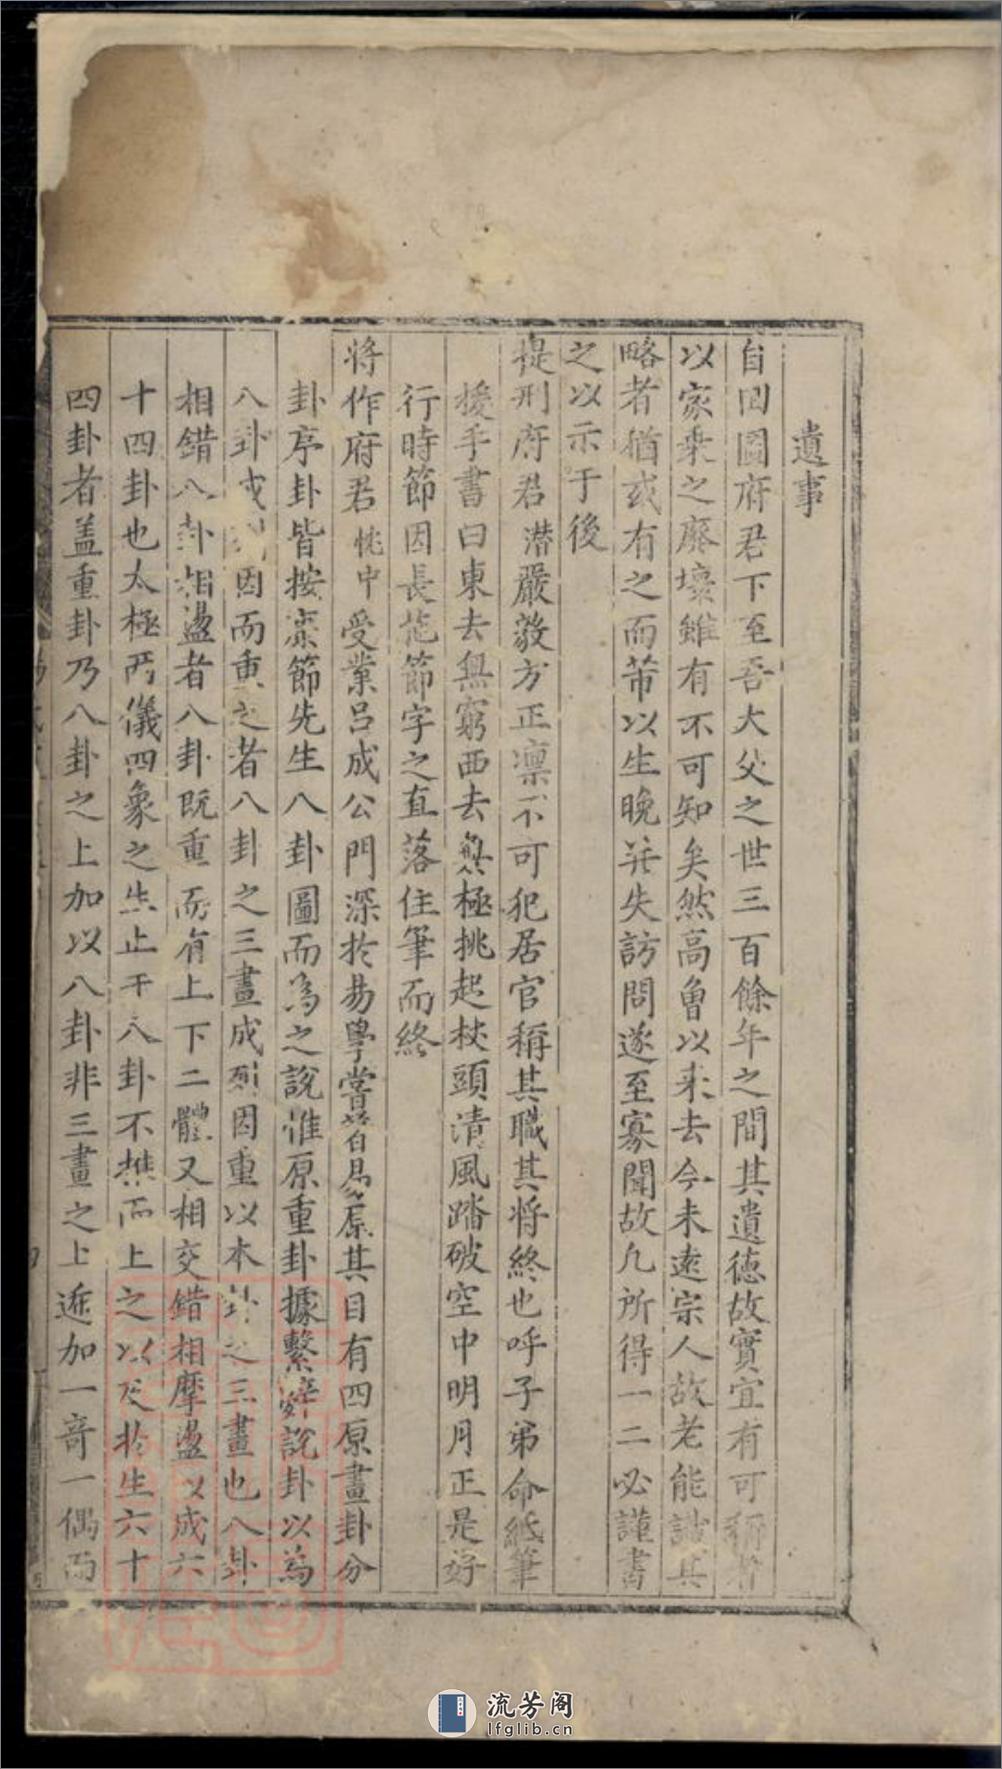 遺事
自回圖府君下至吾大父之世三百餘年之間其遺德故實宜有可稱者
以家乗之廢壞雖有不可知矣然高曾以来去今未遠宗人故老能識其
略者猶或有之而芾以生晚并失訪問遂至寡聞故凢所得一二必謹書
之以示于後
提刑府君潜嚴毅方正凛不可犯居官稱其職其将終也呼子弟命紙筆
援手書曰東去無窮西去無極挑起杖頭清風踏破空中明月正是好
行時節因長芲節字之直落住筆而終
将作府君恍中受業吕成公門深扵易學嘗著易原其目有四原畫卦分
卦序卦皆按康節先生八卦圖而為之說惟原重卦據繫辭說卦以為
八卦成列因而重之者八卦之三畫成列因重以本卦之三畫也八卦
相錯八卦相盪者八卦既重而有上下二體又相交錯相摩盪以成六
十四卦也太極两儀四象之生止于八卦不推而上之以及扵生六十
四卦者盖重卦乃八卦之上加以八卦非三畫之上逓加一竒一偶而
流芳阁
lfglib.cn